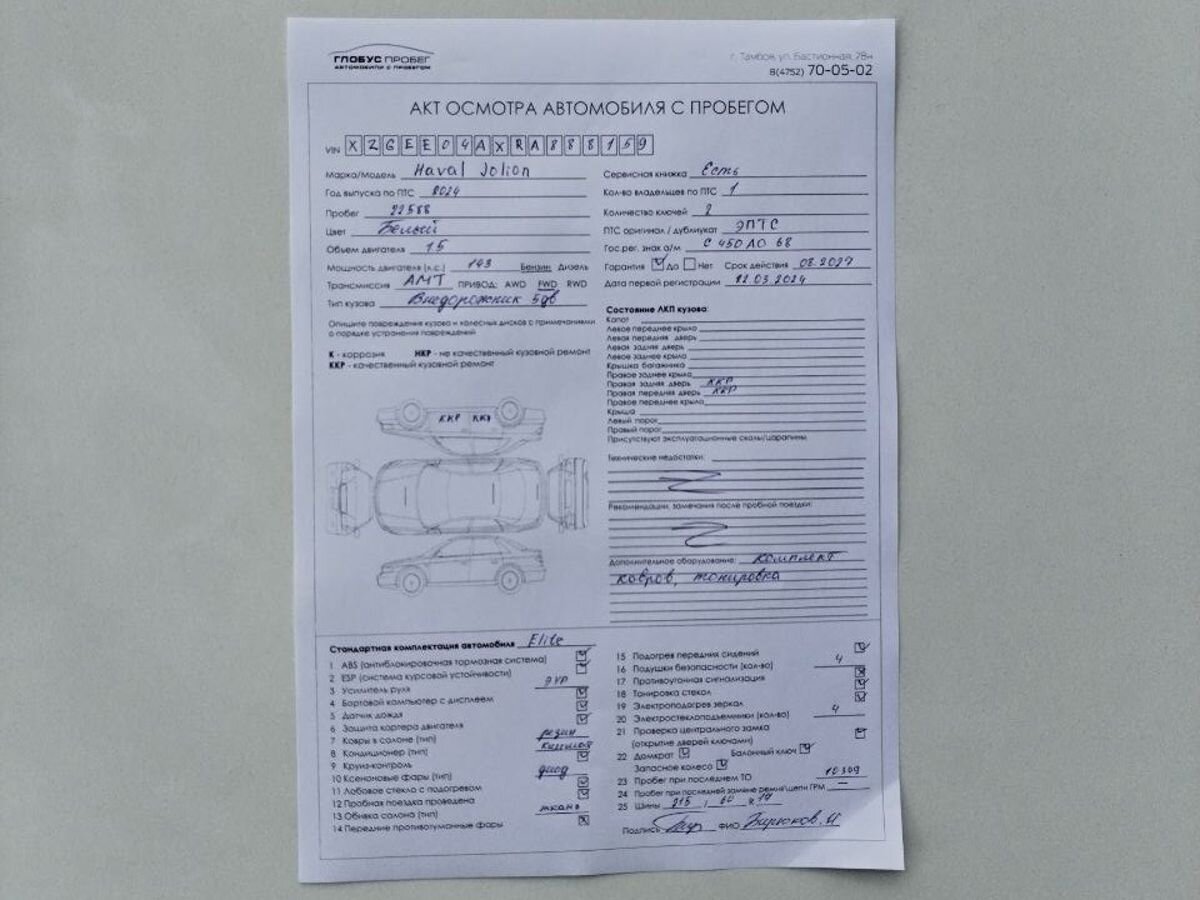 ГЛОБУС ПРОБЕГ
АВТОМОБИЛИ С ПРОБЕГОМ
г. Тамбов, ул. Бастионная, 28н
8(4752) 70-05-02
АКТ ОСМОТРА АВТОМОБИЛЯ С ПРОБЕГОМ
VIN XZGEE04AXRA888159
Марка/Модель Haval Jolion
Год выпуска по ПТС 2024
Пробег 22588
Цвет Белый
Объем двигателя 1.5
Мощность двигателя (л.с.) 143 Бензин Дизель
Трансмиссия АМТ ПРИВОД: AWD FWD RWD
Тип кузова Внедорожник 5дв
Опишите повреждения кузова и колесных дисков с примечаниями
о порядке устранения повреждений
К - коррозия НКР - не качественный кузовной ремонт
ККР - качественный кузовной ремонт
ККР ККР
Сервисная книжка Есть
Кол-во владельцев по ПТС 1
Количество ключей 2
ПТС оригинал / дубликат ЭПТС
Гос.рег. знак а/м С 450 АО 68
Гарантия Да Нет Срок действия 08.2027
Дата первой регистрации 12.03.2024
Состояние ЛКП кузова:
Капот
Левое переднее крыло
Левая передняя дверь
Левая задняя дверь
Левое заднее крыло
Крышка багажника
Правое заднее крыло
Правая задняя дверь ККР
Правая передняя дверь ККР
Правое переднее крыло
Крыша
Левый порог
Правый порог
Присутствуют эксплуатационные сколы/царапины.
Технические недостатки:
Рекомендации, замечания после пробной поездки:
Дополнительное оборудование: комплект
ковров, тонировка
Стандартная комплектация автомобиля Elite
1 ABS (антиблокировочная тормозная система)
2 ESP (система курсовой устойчивости)
3 Усилитель руля ЭУР
4 Бортовой компьютер с дисплеем
5 Датчик дождя
6 Защита картера двигателя
7 Ковры в салоне (тип) резин
8 Кондиционер (тип)
9 Круиз-контроль
10 Ксеноновые фары (тип) диод
11 Лобовое стекло с подогревом
12 Пробная поездка проведена
13 Обивка салона (тип) ткань
14 Передние противотуманные фары
15 Подогрев передних сидений
16 Подушки безопасности (кол-во) 4
17 Противоугонная сигнализация
18 Тонировка стекол
19 Электроподогрев зеркал
20 Электростеклоподъемники (кол-во) 4
21 Проверка центрального замка
(открытие дверей ключами)
22 Домкрат Балонный ключ
Запасное колесо
23 Пробег при последнем ТО 10309
24 Пробег при последней замене ремня/цепи ГРМ —
25 Шины 215 / 60 R 17
Подпись ФИО Бирюков. И